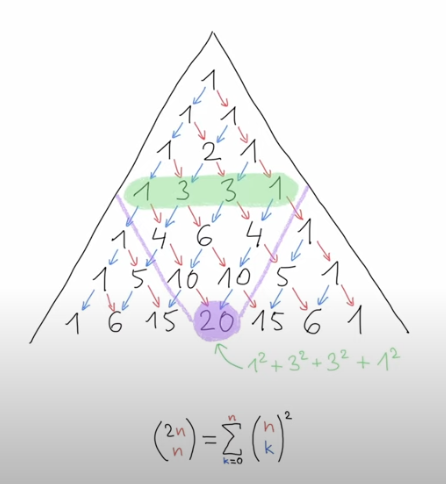 1
1 1
1 2 1
1 3 3 1
1 4 6 4 1
1 5 10 10 5 1
1 6 15 20 15 6 1
1² + 3² + 3² + 1²
(2n n) = n ∑ k=0 (n k)²